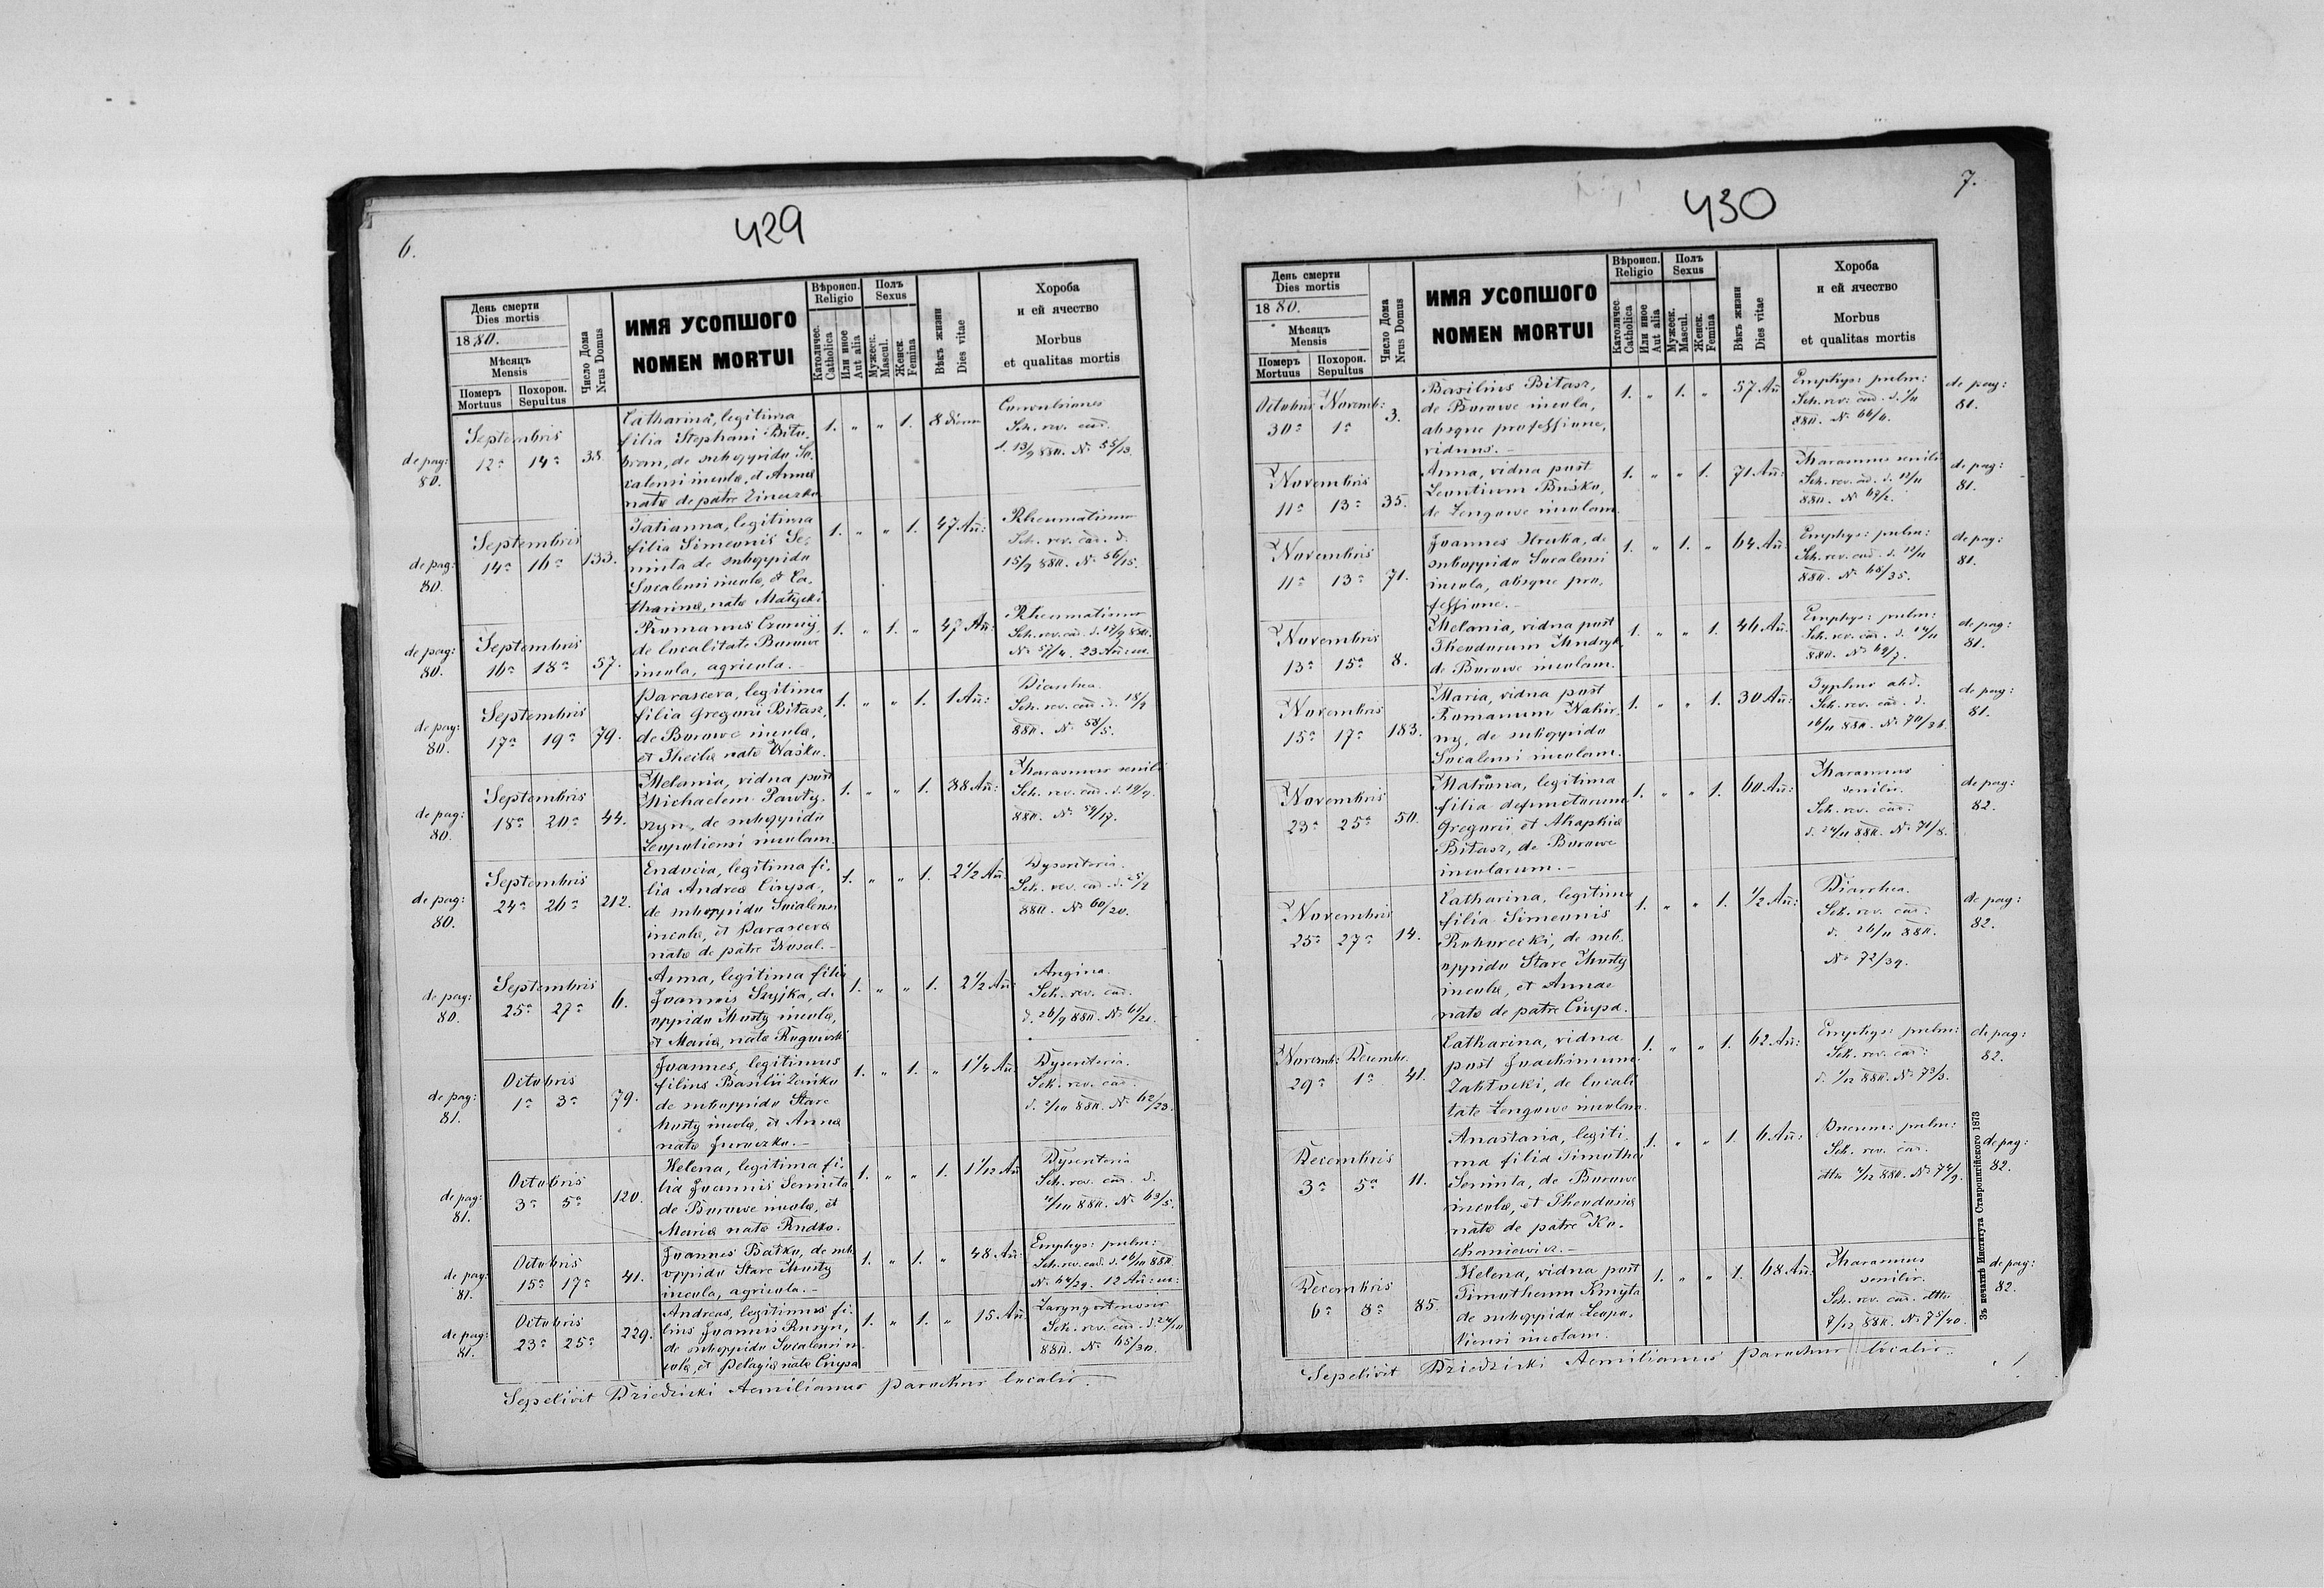 429
6.
День смерти
Dies mortis
1880.
Мѣсяцъ
Mensis
Померъ
Mortuus
Похорон.
Sepultus
Число Дома
Nrus Domus
ИМЯ УСОПШОГО
NOMEN MORTUI
Вѣроисп.
Religio
Католичес.
Catholica
Или иное
Aut alia
Полъ
Sexus
Мужеск.
Mascul.
Женск.
Femina
Вѣкъ жизни
Dies vitae
Хороба
и ей ячество
Morbus
et qualitas mortis
de pag: 80.
Septembris
12a 14a 38.
Catharina, legitima
filia Stephani
de suboppido So-
calensi incolae, et Annae
natae de patre
1. " " 1. 8 dierum
Convulsiones
Sch. rev. cad.
d. 13/9 880. No 55/13.
de pag: 80.
Septembris
14a 16a 133.
Tatianna, legitima
filia Simeonis Se-
niuta de suboppido
Socalensi incolae, et Ca-
tharinae, natae Matycki
1. " " 1. 47 Añ:
Rheumatismus
Sch. rev. cad. d.
15/9 880. No 56/15.
de pag: 80.
Septembris
16a 18a 57.
Romanus Czornij,
de localitate Borowe
incola, agricola.-
1. " 1. " 47 Añ:
Rheumatismus
Sch. rev. cad. d. 17/9 880.
No 57/4. 23 Añ:
de pag: 80.
Septembris
17a 19a 79.
Parasceva, legitima
filia Gregorii Bitasz,
de Borowe incolae,
et Theclae natae Waśko.
1. " " 1. 1 Añ:
Diarrhea.
Sch. rev. cad. d. 18/9
880. No 58/5.
de pag: 80.
Septembris
18a 20a 44.
Melania, vidua post
Michaelem Pawły-
szyn, de suboppido
Leopoliensi incolam.
1. " " 1. 88 Añ:
Marasmus senilis
Sch. rev. cad. d. 19/9.
880. No 59/17.
de pag: 80.
Septembris
24a 26a 212.
Eudocia, legitima fi-
lia Andreae Ciupa,
de suboppido Socalensi
incolae, et Parascevae
natae de patre Kusal.-
1. " " 1. 2 1/2 Añ.
Dysenteria.
Sch. rev. cad. d. 25/9
880. No 60/20.
de pag: 80.
Septembris
25a 27a 6.
Anna, legitima filia
Joannis Szyjka, de
oppido Mosty incolae,
et Mariae, natae Rogowski
1. " " 1. 2 1/2 Añ:
Angina.
Sch. rev. cad.
d. 26/9 880. No 61/21.
de pag: 81.
Octobris
1a 3a 79.
Joannes, legitimus
filius Basilii Zańko
de suboppido Stare
Mosty incolae, et Annae
natae Juraszko.-
1. " 1. " 1 1/4 Añ.
Dysenteria.
Sch. rev. cad.
d. 2/10 880. No 62/23.
de pag: 81.
Octobris
3a 5a 120.
Helena, legitima fi-
lia Joannis Seniuta
de Borowe incolae, et
Mariae natae Rudko.
1. " " 1. 1 1/12 Añ
Dysenteria
Sch. rev. cad. d.
4/10 880. No 63/5.
de pag: 81.
Octobris
15a 17a 41.
Joannes Batko, de sub-
oppido Stare Mosty
incola, agricola.-
1. " 1. " 48 Añ:
Emphys: pulm:
Sch. rev. cad. d. 16/10 880.
No 64/29. 12 Añ:
de pag: 81.
Octobris
23a 25a 229.
Andreas, legitimus fi-
lius Joannis Rusyn,
de suboppido Socalensi in-
colae, et Pelagiae natae Ciupa
1. " 1. " 15 Añ.
Sch. rev. cad. d. 24/10
880. No 65/30.
Sepelivit Dziedzicki Aemilianus parochus localis.
430
7.
День смерти
Dies mortis
1880.
Мѣсяцъ
Mensis
Померъ
Mortuus
Похорон.
Sepultus
Число Дома
Nrus Domus
ИМЯ УСОПШОГО
NOMEN MORTUI
Вѣроисп.
Religio
Католичес.
Catholica
Или иное
Aut alia
Полъ
Sexus
Мужеск.
Mascul.
Женск.
Femina
Вѣкъ жизни
Dies vitae
Хороба
и ей ячество
Morbus
et qualitas mortis
Octobris Novemb:
30a 1a 3.
Basilius Bitasz,
de Borowe incola,
absque professione,
viduus.-
1. " 1. " 57 Añ
Emphys: pulm:
Sch. rev: cad. d. 1/11
880. No 66/6.
de pag: 81.
Novembris
11a 13a 35.
Anna, vidua post
Leontium Buśko,
de Zengowe incolam.
1. " " 1. 71 Añ:
Marasmus senilis
Sch. rev. cad. d. 12/11
880. No 67/2.
de pag: 81.
Novembris
11a 13a 71.
Joannes Hruba, de
suboppido Socalensi
incola, absque pro-
fessione.-
1. " 1. " 64 Añ.
Emphys: pulm:
Sch. rev. cad. d. 12/11
880. No 68/35.
de pag: 81.
Novembris
13a 15a 8.
Melania, vidua post
Theodorum Mudryk,
de Borowe incolam.
1. " " 1. 46 Añ.
Emphys: pulm:
Sch. rev. cad. d. 14/11
880. No 69/7.
de pag: 81.
Novembris
15a 17a 183.
Maria, vidua post
Romanum Nakir-
ny, de suboppido
Socalensi incolam.
1. " " 1. 30 Añ:
Typhus abd.
Sch. rev. cad. d.
16/11 880. No 70/36.
de pag: 81.
Novembris
23a 25a 50.
Matrona, legitima
filia defunctorum
Gregorii et Ahapkiae
Bitasz, de Borowe
incolarum.-
1. " " 1. 60 Añ:
Marasmus
senilis.
Sch. rev. cad:
d. 24/11 880. No 71/8.
de pag: 82.
Novembris
25a 27a 14.
Catharina, legitima
filia Simeonis
Rohurecki, de sub-
oppido Stare Mosty
incolae, et Annae
natae de patre Ciupa.
1. " " 1. 1/2 Añ:
Diarrhea.
Sch. rev. cad:
d. 26/11 880.
No 72/39.
de pag: 82.
Novemb: Decembr.
29a 1a 41.
Catharina, vidua
post Joachimum
Zakłocki, de locali
tate Zengowe incolam.
1. " " 1. 62 Añ:
Emphys: pulm:
Sch. rev. cad:
d. 1/12 880. No 73/3.
de pag: 82.
Decembris
3a 5a 11.
Anastasia, legiti-
ma filia Timothei
Seniuta, de Borowe
incolae, et Theodosiae
natae de patre Ko-
chaniewicz.-
1. " " 1. 6 Añ:
Pneum: pulm:
Sch. rev. cad.
dtto 4/12 880. No 74/9.
de pag: 82.
Decembris
6a 8a 85.
Helena, vidua post
Timotheum Kmyta
de suboppido Leopo-
liensi incolam.
1. " " 1. 68 Añ:
Marasmus
senilis.
Sch. rev. cad. dtto
7/12 880. No 75/40.
de pag: 82.
Sepelivit Dziedzicki Aemilianus parochus localis.
Зъ печатнѣ Института Ставропигійского 1873